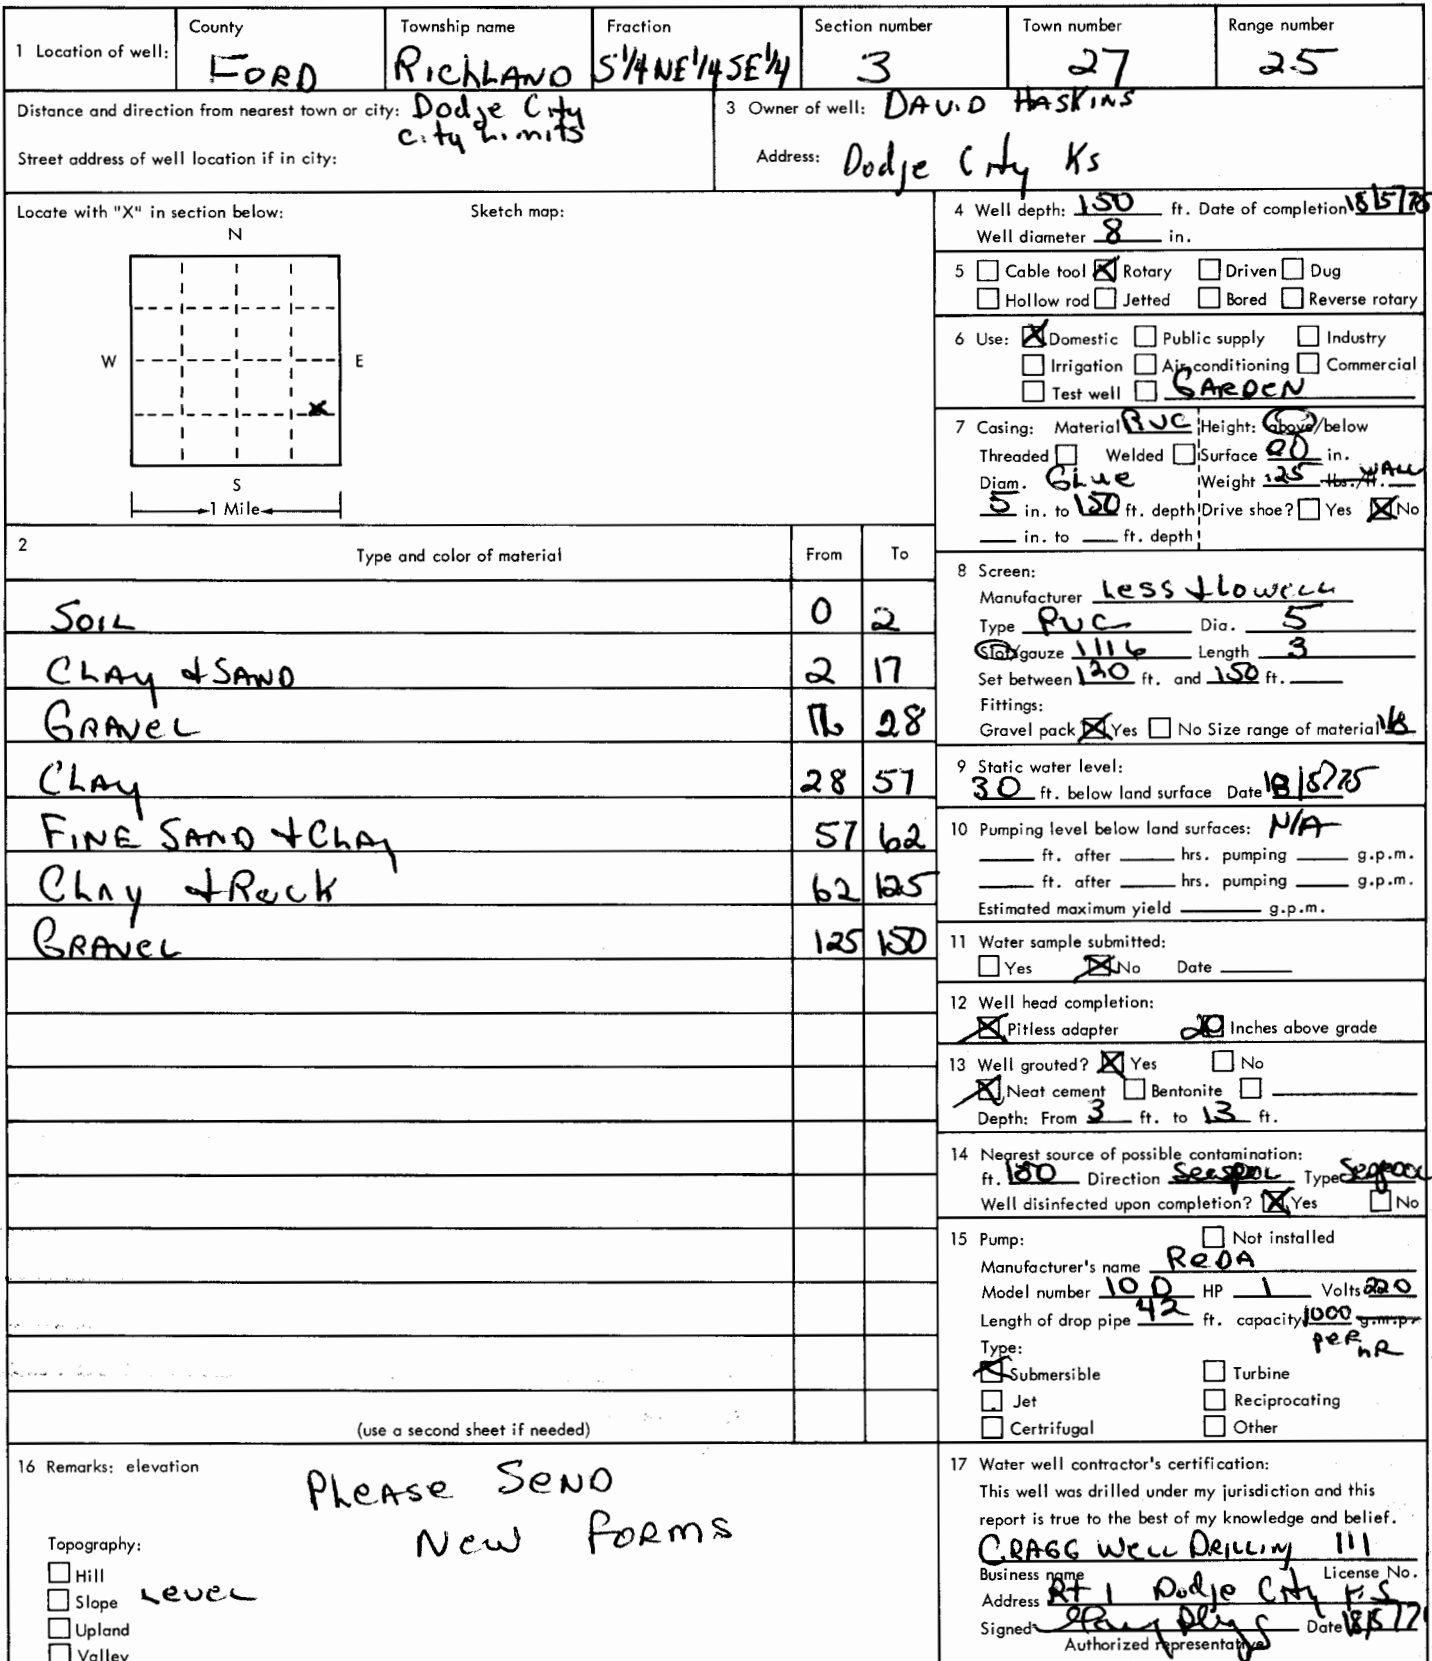 1 Location of well:
County
FORD
Township name
RICHLAND
Fraction
S 1/4 NE 1/4 SE 1/4
Section number
3
Town number
27
Range number
25
Distance and direction from nearest town or city: Dodge City
City Limits
Street address of well location if in city:
3 Owner of well: DAVID HASKINS
Address: Dodge City Ks
Locate with "X" in section below:
Sketch map:
N
W
E
S
1 Mile
2
Type and color of material
From
To
SOIL 0 2
CLAY & SAND 2 17
GRAVEL 28
CLAY 28 57
FINE SAND & CLAY 57 62
CLAY & Rock 62 125
GRAVEL 125 150
(use a second sheet if needed)
4 Well depth: 150 ft. Date of completion
Well diameter 8 in.
5 Cable tool Rotary Driven Dug
Hollow rod Jetted Bored Reverse rotary
6 Use: Domestic Public supply Industry
Irrigation Air conditioning Commercial
Test well GARDEN
7 Casing: Material PVC Height: above/below
Threaded Welded Surface 20 in.
Diam. GLUE Weight .25 lbs./ft. WALL
5 in. to 150 ft. depth Drive shoe? Yes No
in. to ft. depth
8 Screen:
Manufacturer
Type PVC Dia. 5
Slot/gauze Length 3
Set between ft. and 150 ft.
Fittings:
Gravel pack Yes No Size range of material
9 Static water level:
30 ft. below land surface Date
10 Pumping level below land surfaces: N/A
ft. after hrs. pumping g.p.m.
ft. after hrs. pumping g.p.m.
Estimated maximum yield g.p.m.
11 Water sample submitted:
Yes No Date
12 Well head completion:
Pitless adapter 20 Inches above grade
13 Well grouted? Yes No
Neat cement Bentonite
Depth: From 3 ft. to 13 ft.
14 Nearest source of possible contamination:
ft. Direction Type
Well disinfected upon completion? Yes No
15 Pump: Not installed
Manufacturer's name REDA
Model number 10 D HP 1 Volts 220
Length of drop pipe 42 ft. capacity 1000 g.m.p.
PER HR
Type:
Submersible Turbine
Jet Reciprocating
Certrifugal Other
16 Remarks: elevation
PLEASE SEND
NEW FORMS
Topography:
Hill
Slope LEVEL
Upland
Valley
17 Water well contractor's certification:
This well was drilled under my jurisdiction and this
report is true to the best of my knowledge and belief.
CRAGG WELL DRILLING 111
Business name License No.
Address Rt 1 Dodge City KS
Signed Date
Authorized representative